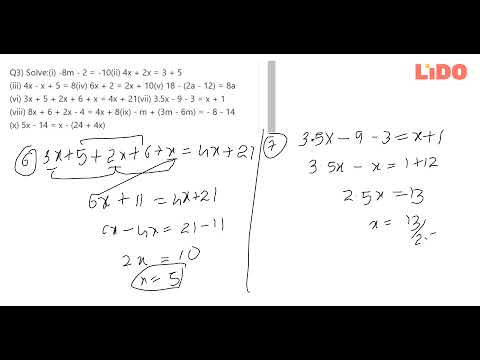 LiDO
Q3) Solve:(i) -8m - 2 = -10(ii) 4x + 2x = 3 + 5
(iii) 4x - x + 5 = 8(iv) 6x + 2 = 2x + 10(v) 18 - (2a - 12) = 8a
(vi) 3x + 5 + 2x + 6 + x = 4x + 21(vii) 3.5x - 9 - 3 = x + 1
(viii) 8x + 6 + 2x - 4 = 4x + 8(ix) - m + (3m - 6m) = - 8 - 14
(x) 5x - 14 = x - (24 + 4x)
6 3x+5+2x+6+x = 4x+21
6x + 11 = 4x+21
6x - 4x = 21-11
2x = 10
x = 5
7 3.5x - 9 - 3 = x+1
3 5x - x = 1+12
2 5x = 13
x = 13/2.5